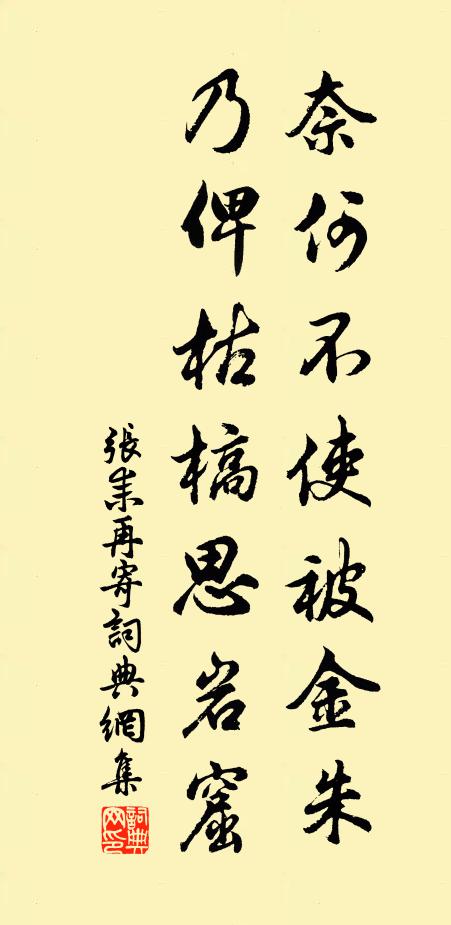 奈何不使被金朱
乃俾枯槁思岩窟
張耒再寄詞典網集
詞典
网印